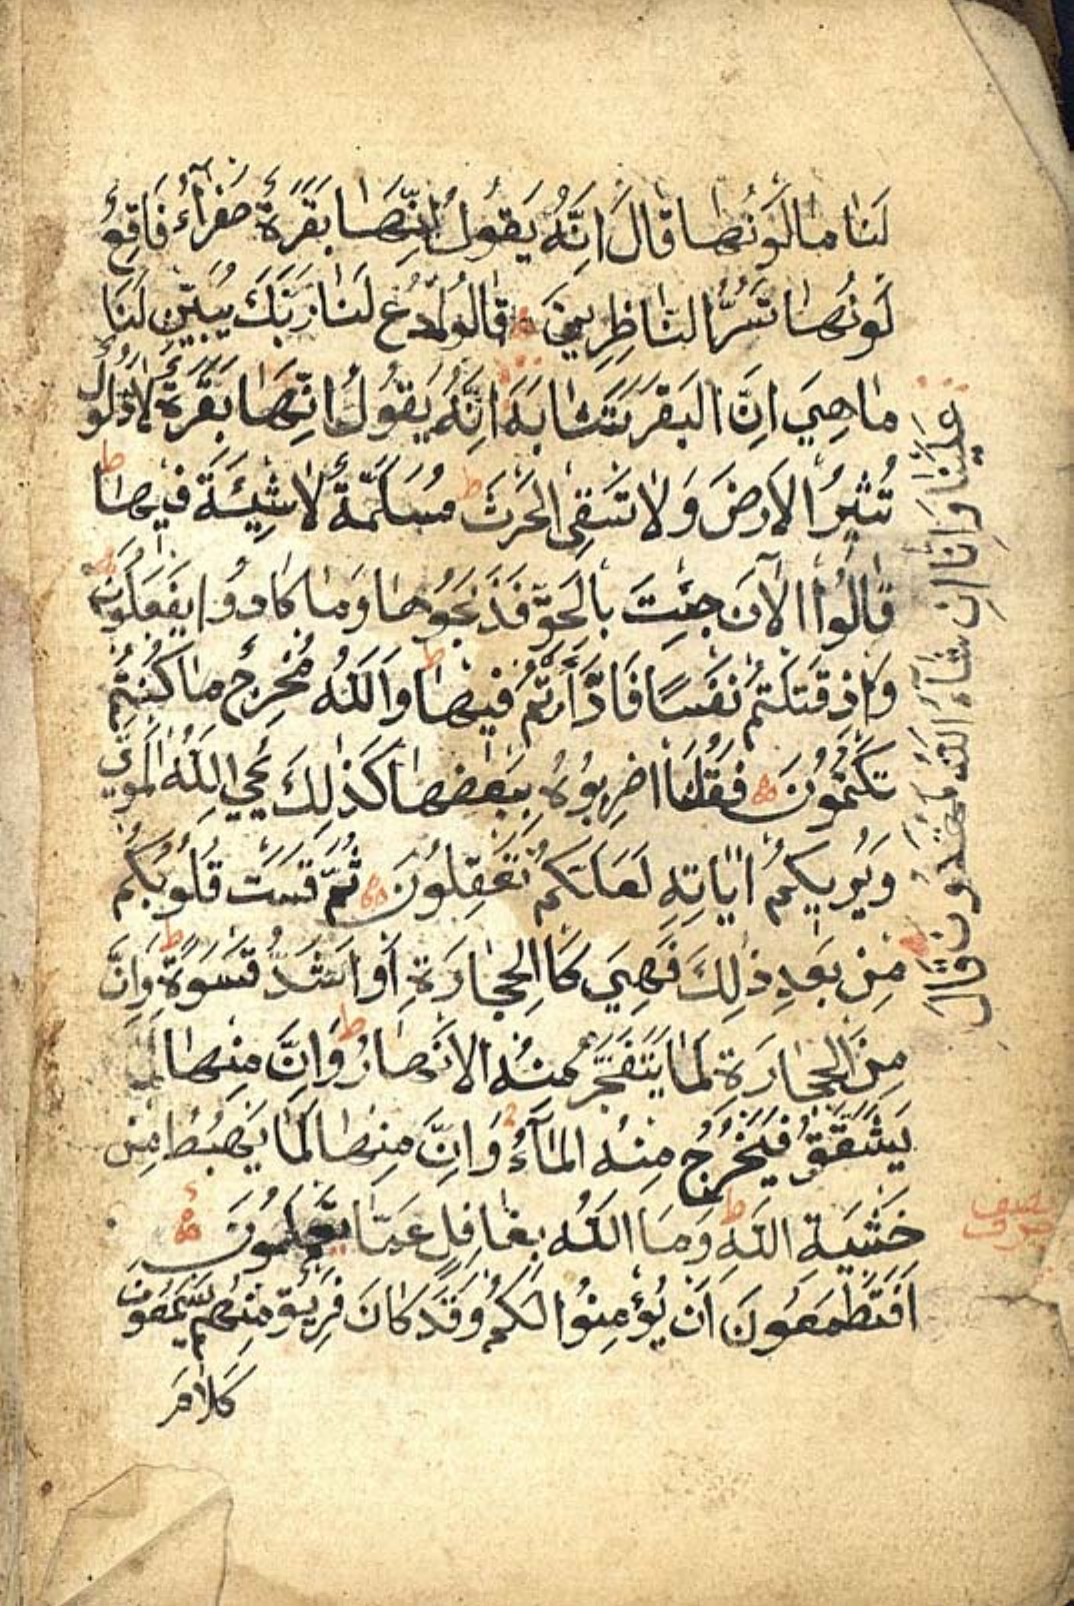 لَنَا مَا لَوْنُهَا قَالَ اِنَّهُ يَقُولُ اِنَّهَا بَقَرَةٌ صَفْرَآءُ فَاقِعٌ
لَوْنُهَا تَسُرُّ النَّاظِرِينَ قَالُوا ادْعُ لَنَا رَبَّكَ يُبَيِّنْ لَنَا
مَا هِيَ اِنَّ البَقَرَ تَشَابَهَ اِنَّهُ يَقُولُ اِنَّهَا بَقَرَةٌ لَا ذَلُولٌ
تُثِيرُ الْاَرْضَ وَلَا تَسْقِى الْحَرْثَ ط مُسَلَّمَةٌ لَا شِيَةَ فِيهَا ط
قَالُوا الْآنَ جِئْتَ بِالْحَقِّ فَذَبَحُوهَا وَمَا كَادُوا يَفْعَلُونَ
وَاِذْ قَتَلْتُمْ نَفْسًا فَادَّارَأْتُمْ فِيهَا ط وَاللّٰهُ مُخْرِجٌ مَا كُنْتُمْ
تَكْتُمُونَ فَقُلْنَا اضْرِبُوهُ بِبَعْضِهَا كَذٰلِكَ يُحْيِ اللّٰهُ الْمَوْتٰى
وَيُرِيكُمْ اٰيَاتِهِ لَعَلَّكُمْ تَعْقِلُونَ ثُمَّ قَسَتْ قُلُوبُكُمْ
مِنْ بَعْدِ ذٰلِكَ فَهِيَ كَالْحِجَارَةِ اَوْ اَشَدُّ قَسْوَةً ط وَاِنَّ
مِنَ الْحِجَارَةِ لَمَا يَتَفَجَّرُ مِنْهُ الْاَنْهَارُ ط وَاِنَّ مِنْهَا لَمَا
يَشَّقَّقُ فَيَخْرُجُ مِنْهُ الْمَآءُ وَاِنَّ مِنْهَا لَمَا يَهْبِطُ مِنْ
خَشْيَةِ اللّٰهِ ط وَمَا اللّٰهُ بِغَافِلٍ عَمَّا تَعْمَلُونَ
اَفَتَطْمَعُونَ اَنْ يُؤْمِنُوا لَكُمْ وَقَدْ كَانَ فَرِيقٌ مِنْهُمْ يَسْمَعُونَ
كَلَامَ
عَلَيْنَا وَاِنَّا اِنْ شَآءَ اللّٰهُ لَمُهْتَدُونَ قَالَ
نصف حزب